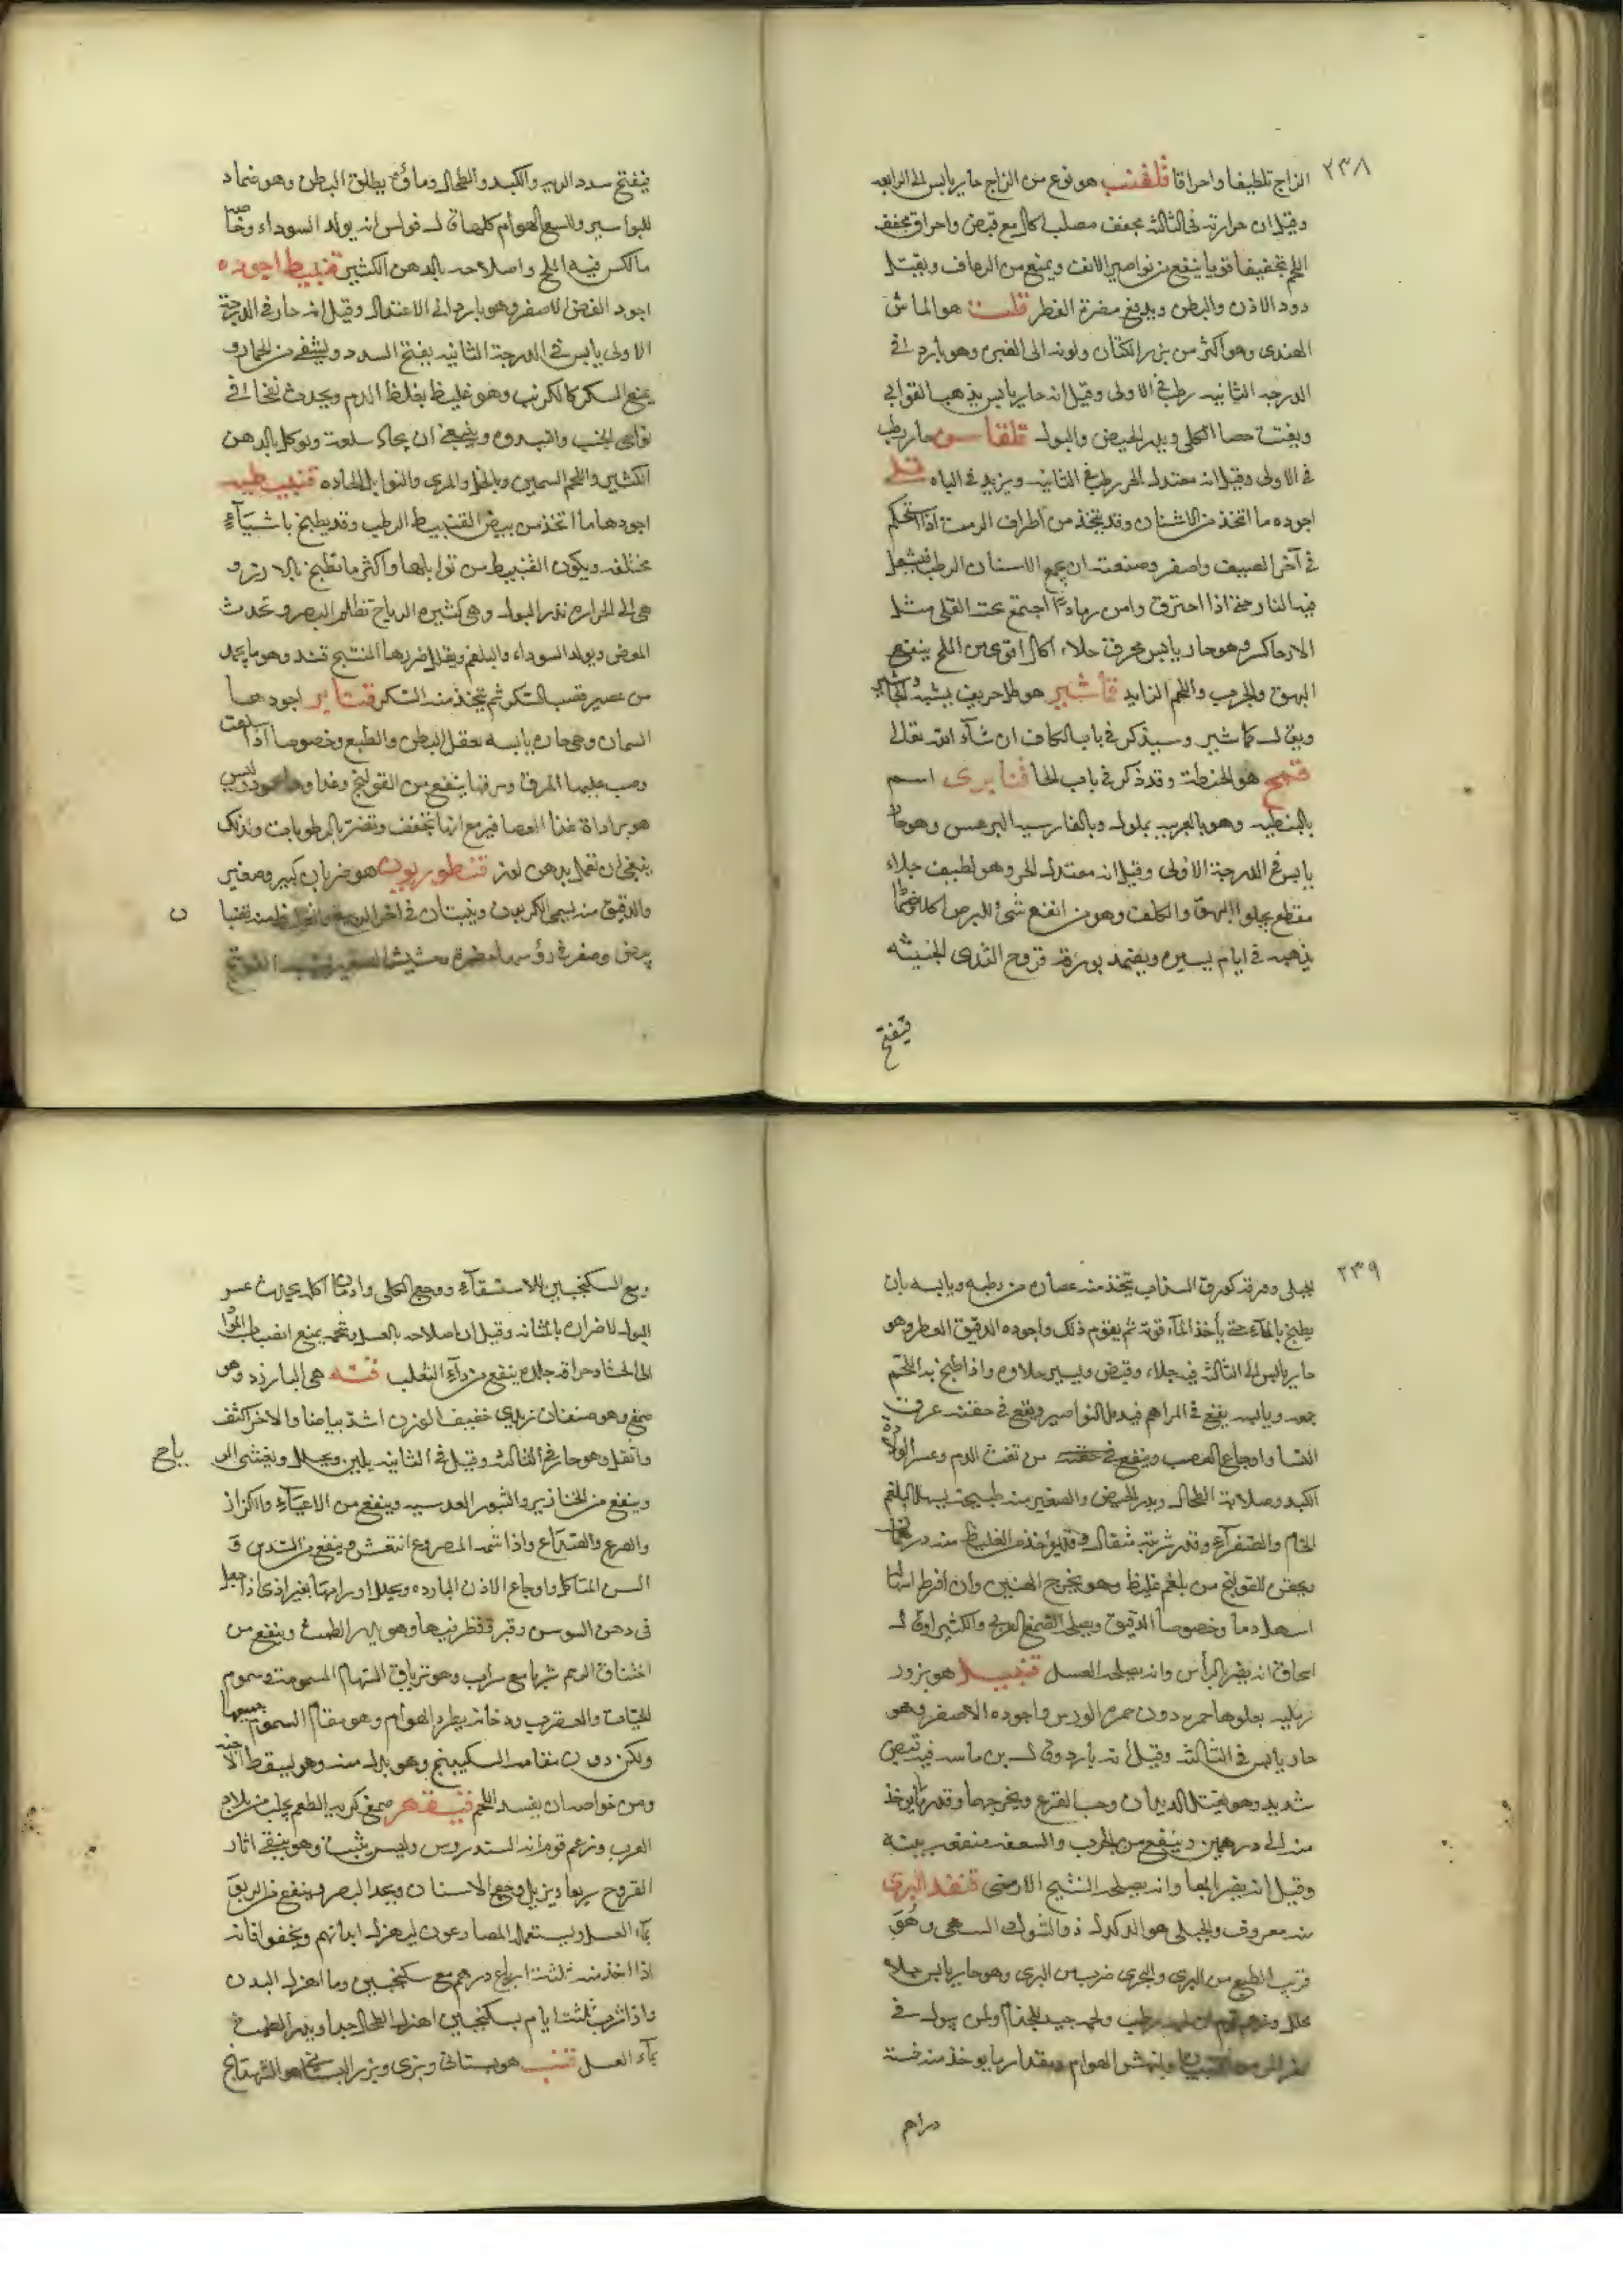 ٢٣٨
الزاج تلطيفا واحراقا قلقنت هو نوع من الزاج حار يابس الى الرابعه
وقيل ان حرارته فى الثالثه مجفف مصلب اكال مع قبض واحراق مجفف
اللحم تجفيفا قويا ينفع من نواصير الانف ويمنع من الرعاف ويقتل
دود الاذن والبطن ويدفع مضرة الفطر قلت هو الماش
الهندى وهو اكثر من بزر الكتان ولونه الى الغبره وهو بارد فى
الدرجه الثانيه رطب فى الاولى وقيل انه حار يابس يذهب القوابى
ويفتت حصا الكلى ويدر الحيض والبول قلقاس حار رطب
فى الاولى وقيل انه معتدل الحر رطب فى الثانيه ويزيد فى الباه قلى
اجوده ما اتخذ من الاشنان وقد يتخذ من اطراف الرمث اذا استحكم
فى آخر الصيف واصفر وصنعته ان يجمع الاسنان الرطب فيشعل
فيه النار حتى اذا احترق وامن رمادًا اجتمع تحته القلى مثل
الارحا كر وهو حار يابس محرق جلاء اكال اقوى من الملح ينفع من
البهق والجرب واللحم الزايد قماشير هو طل حريف يشبه الجاشير
ويقال كماشير وسيذكر فى باب الكاف ان شآء الله تعالى
قمح هو الحنطة وقد ذكر فى باب الحا قنابرى اسم
بالنبطيه وهو بالعربيه بملول وبالفارسيه البرغس وهو حار
يابس فى الدرجة الاولى وقيل انه معتدل الحر وهو لطيف جلاء
مقطع يجلوا البهق والكلف وهو من انفع شئ للبرص اكلا وضمادا
يذهبه فى ايام يسيره ويضمد بورقه قروح الثدى الخبيثه
فيفتح
فيفتح سدد الريه والكبد والطحال وماؤه يطلق البطن وهو ضماد
للبواسير ولسع الهوام كلها قال فولس انه يولد السوداء وخاصه
ما كبس فيه الملح واصلاحه بالدهن الكثير قنبيط اجوده
اجود الغض الاصفر وهو بارد الى الاعتدال وقيل انه حار فى الدرجة
الاولى يابس فى الدرجة الثانيه يفتح السدد ويشفى من الخمار و
يمنع السكر كالكرنب وهو غليظ يغلظ الدم ويحدث نفخا فى
نواحى الجنب وينبغى ان يجاد سلقه ويوكل بالدهن
الكثير واللحم السمين وبالخل والمرى والتوابل الحاده قنبيطيه
اجودها ما اتخذ من بيض القنبيط الرطب وقد يطبخ باشيآءٍ
مختلفه ويكون القنبيط من توابلها واكثر ما تطبخ بالارز و
هى الى الحراره تدر البول وهى كثيره الرياح تظلم البصر وتحدث
المغص ويولد السوداء والبلغم ويقلل ضررها المنتبج قند وهو ما يجمد
من عصير قصب السكر ثم يتخذ منه السكر قنابر اجودها
السمان وهى حاره يابسه تعقل البطن والطبع وخصوصا اذا سلقت
وصب عليها المرق ومرقها ينفع من القولنج وغذاوها
ينبغى ان تعمل بدهن لوز قنطوريون هو ضربان كبير وصغير
والدقيق منه يسمى
٢٣٩
الجبلى وورقه كورق السذاب يتخذ منه عصاره من رطبه ويابسه بان
يطبخ بالمآء حتى يأخذ المآء قوته ثم يقوم ذلك واجوده الدقيق العطر وهو
حار يابس الى الثالثه فيه جلاء وقبض ويسير حلاوه واذا طبخ به اللحم
جمعه ويابسه يقع فى المراهم فيدمل النواصير ويقع فى حقنه عرق
النسا واوجاع العصب وينفع من نفث الدم وعسر الولادة
الكبد وصلابة الطحال ويدر الحيض والصغير منه طبيخه يسهل البلغم
الخام والصفرآء وقدر شربته مثقال وقد يؤخذ من الغليظ منه درهمان
ويحقن للقولنج من بلغم غليظ وهو يخرج الجنين وان افرط اسهاله
اسهل دما وخصوصا الدقيق ويصلحه الصمغ العربى والكثيرا وقال
اسحاق انه يضر بالراس وانه يصلحه العسل قنبيل هو بزور
رمليه يعلوها حمره دون حمره الورس واجوده الاصفر وهو
حار يابس فى الثالثه وقيل انه بارد وقال بن ماسه فيه قبض
شديد وهو يقتل الديدان وحب القرع ويخرجها وقدر ما يوخذ
منه الى درهمين وينفع من الجرب والسعفه منفعه بينه
وقيل انه يضر بالمعا وانه يصلحه الشيح الارمنى قنفذ البرى
منه معروف والجبلى هو الدلدل ذو الشوك السهمى وهو
قريب الطبع من البرى والبحرى ضرب من البرى وهو حار يابس جلاء
محلل وزعم قوم ان لحمه رطب ولحمه جيد للجذام ولمن يبول فى
ولنهش الهوام ومقدار ما يوخذ منه خمسة
دراهم
ومع السكنجبين للاستسقآء ووجع الكلى وادمان اكله يحدث عسر
البول لاضراره بالمثانه وقيل ان اصلاحه بالعسل وشحمه يمنع انصباب المواد
الى الاحشا وحراقه جلده ينفع من دآء الثعلب قنه هى البارزد وهو
صمغ وهو صنفان زبدى خفيف الوزن اشد بياضا والاخر اكثف
واثقل وهو حار فى الثالثه وقيل فى الثانيه يلين ويحلل ويفشى الرياح
وينفع من الخنازير والبثور العدسيه وينفع من الاعيآء والكزاز
والصرع والصداع واذا شمه المصروع انتعش وينفع من السدر و
السن المتاكل واوجاع الاذن البارده ويحلل اورامها بغير اذى اذا جعل
فى دهن السوسن وفتر وقطر فيها وهو يدر الطمث وينفع من
اختناق الرحم شربا مع شراب وهو ترياق السهام المسمومة وسموم
الحيات والعقرب ودخانه يطرد الهوام وهو مقام السموم جميعها
ولكن دون مقامه السكبينج وهو بدل منه وهو يسقط الاجنه
ومن خواصه ان يفسد اللحم قنقهر صمغ كريه الطعم يجلب من بلاد
العرب وزعم قوم انه السندروس وليس بثبت وهو ينقى اثار
القروح سريعا ويزيل وجع الاسنان ويحد البصر وينفع من الربو
بمآء العسل ويستعمله المصارعون ليهزل ابدانهم ويخفوا فانه
اذا اخذ منه ثلثة ارباع درهم مع سكنجبين وما اهزل البدن
واذا شرب ثلثة ايام بسكنجبين اهزل الطحال جدا ويدر الطمث
بمآء العسل قنب هو بستانى وبرى وبزر البستانى هو الشهدانج